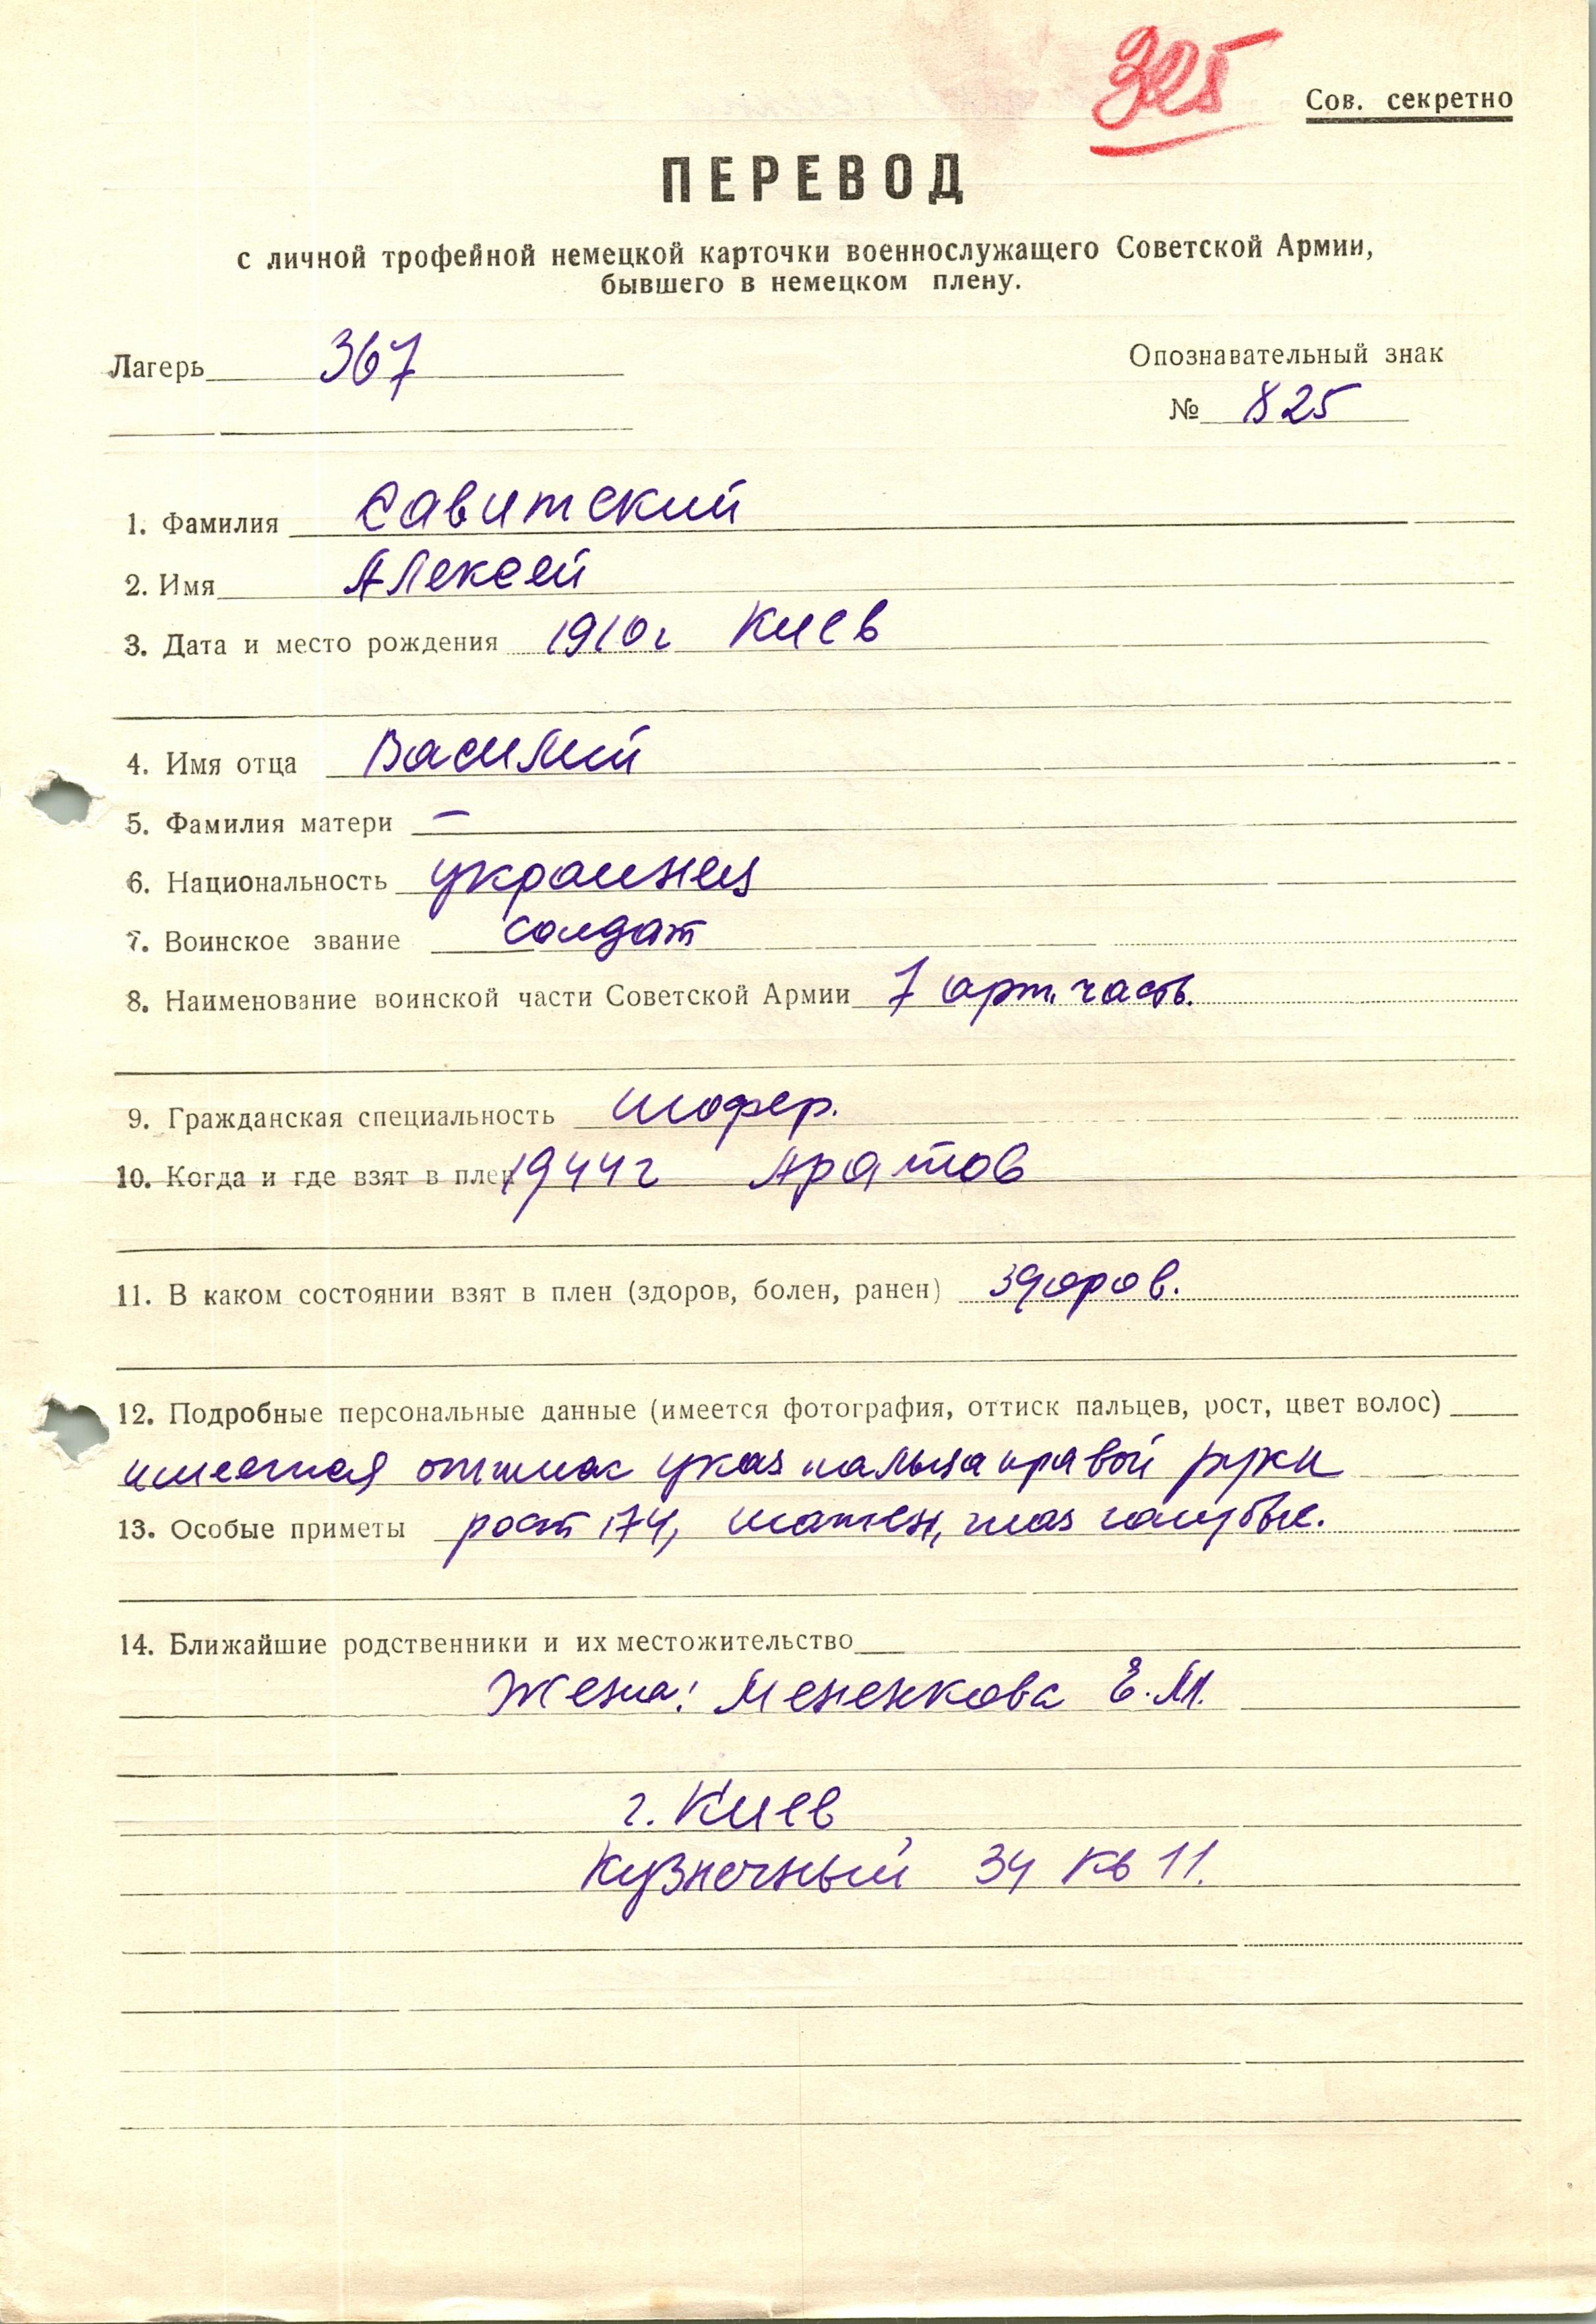 325
Сов. секретно
ПЕРЕВОД
с личной трофейной немецкой карточки военнослужащего Советской Армии,
бывшего в немецком плену.
Лагерь 367
Опознавательный знак
№ 825
1. Фамилия Савитский
2. Имя Алексей
3. Дата и место рождения 1910г Киев
4. Имя отца Василий
5. Фамилия матери —
6. Национальность украинец
7. Воинское звание солдат
8. Наименование воинской части Советской Армии 7 арт. часть.
9. Гражданская специальность шофер.
10. Когда и где взят в плен 1944г Аратов
11. В каком состоянии взят в плен (здоров, болен, ранен) здоров.
12. Подробные персональные данные (имеется фотография, оттиск пальцев, рост, цвет волос)
имеется оттиск указ пальца правой руки
13. Особые приметы рост 174, шатен, глаз голубые.
14. Ближайшие родственники и их местожительство
Жена: Мененкова Е.М.
г. Киев
Кузнечный 34 кв 11.